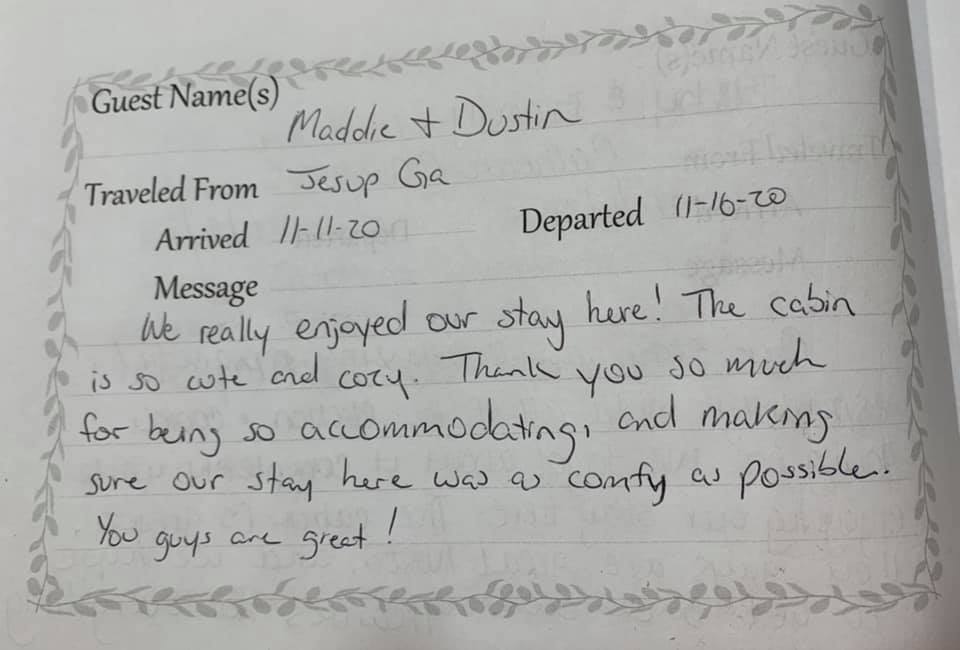 Guest Name(s) Maddie + Dustin
Traveled From Jesup Ga
Arrived 11-11-20 Departed 11-16-20
Message
We really enjoyed our stay here! The cabin
is so cute and cozy. Thank you so much
for being so accommodating, and making
sure our stay here was as comfy as possible.
You guys are great!